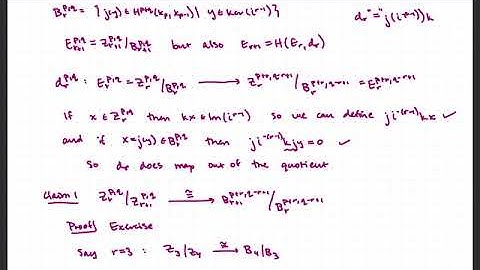 B_r^{p,q} = { j(y) ∈ H^{p+q}(K_p, K_{p-1}) | y ∈ ker(i^{r-1}) }
d_r "=" j(i^{-(r-1)})k
E_{r+1}^{p,q} = Z_{r+1}^{p,q} / B_{r+1}^{p,q} but also E_{r+1} = H(E_r, d_r)
d_r^{p,q} : E_r^{p,q} = Z_r^{p,q} / B_r^{p,q} ⟶ Z_r^{p+r,q-r+1} / B_r^{p+r,q-r+1} = E_r^{p+r,q-r+1}
If x ∈ Z_r^{p,q} then kx ∈ Im(i^{r-1}) so we can define j i^{-(r-1)} kx ✓
and if x = j(y) ∈ B_r^{p,q} then j i^{-(r-1)} kjy = 0 ✓
So d_r does map out of the quotient
Claim 1 Z_r^{p,q} / Z_{r+1}^{p,q} ⟶≅ B_{r+1}^{p+r,q-r+1} / B_r^{p+r,q-r+1}
Proof: Exercise
Say r=3 : Z_3/Z_4 ⟶≅ B_4/B_3